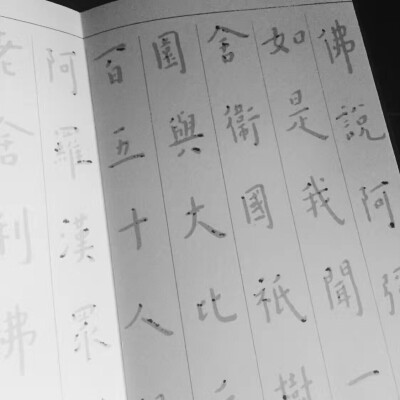 佛說阿彌
如是我聞一
舍衛國祇樹
園與大比丘
百五十人
阿羅漢眾
老舍利佛